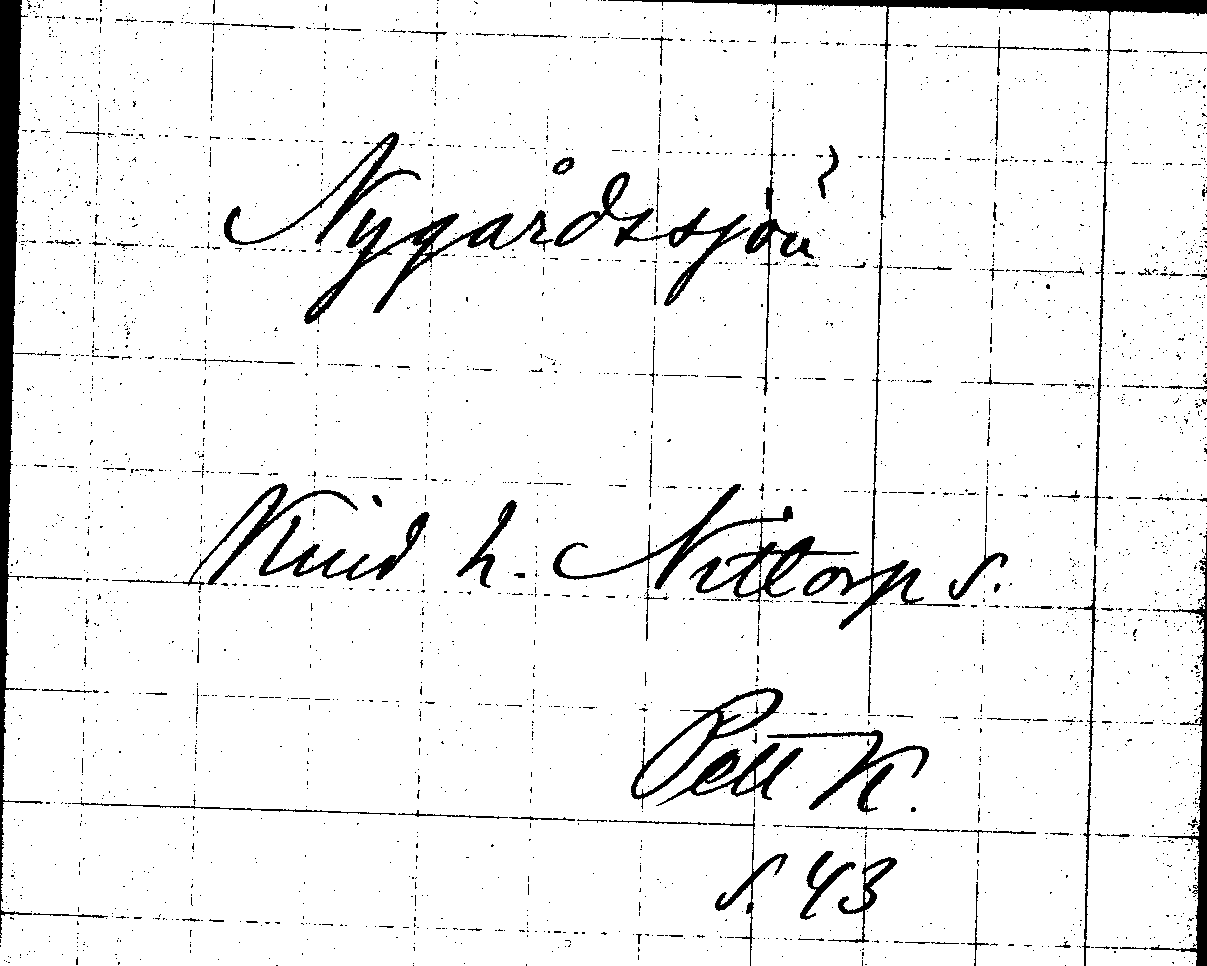 Nygårdssjön
Kind h. Nittorp s.
Pett K.
s. 43